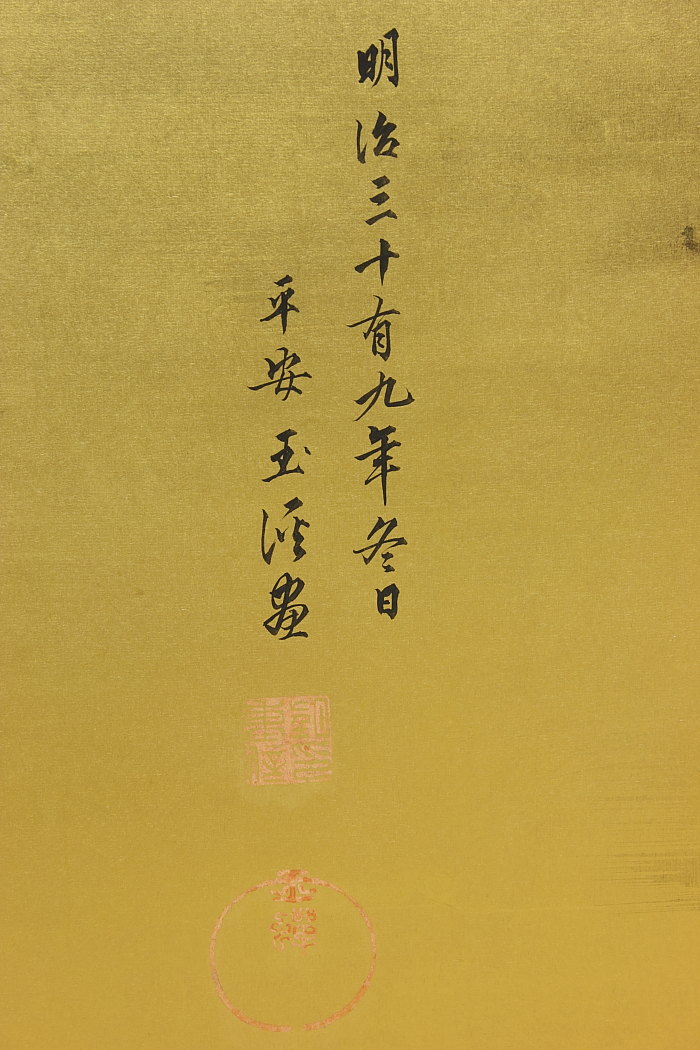 明治三十有九年冬日
平安玉溪畫